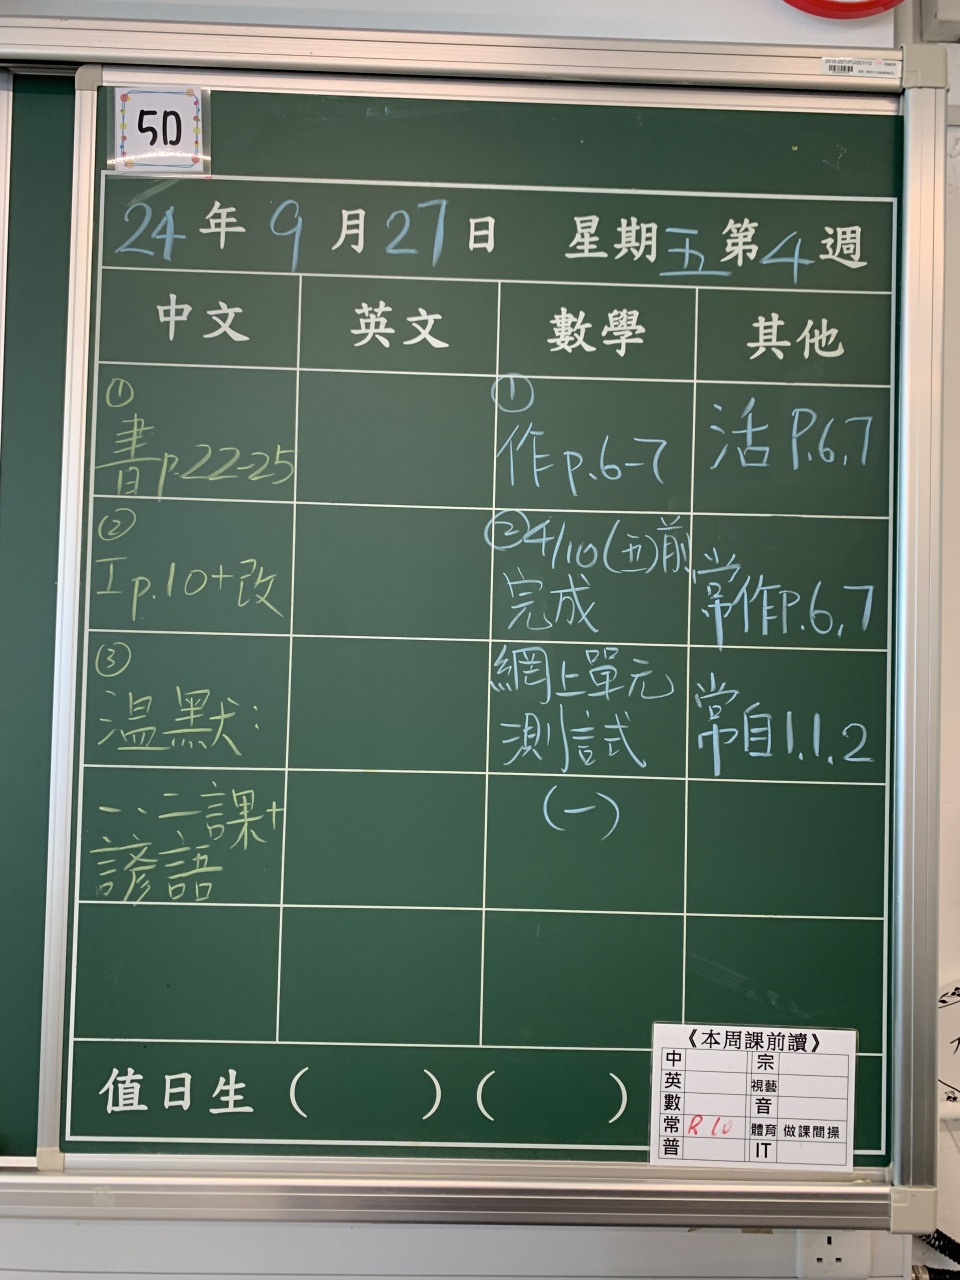 5D
24年9月27日 星期五第4週
中文 英文 數學 其他
①
書p.22-25
②
I p.10+改
③
溫默:
一、二課+
諺語
①
作p.6-7
②4/10(五)前
完成
網上單元
測試
(一)
活P.6,7
常作P.6,7
常自1.1.2
值日生( )( )
《本周課前讀》
中 宗
英 視藝
數 音
常 R 10 體育 做課間操
普 IT